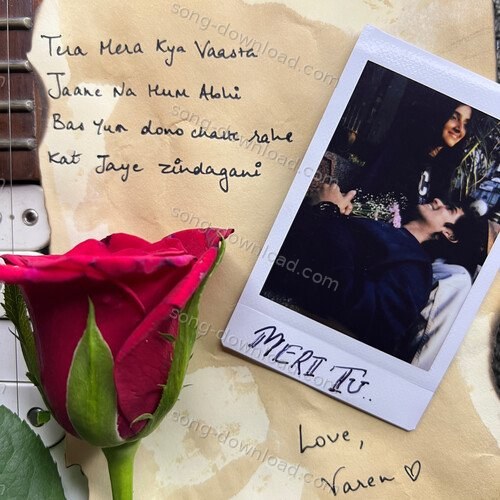 Tera Mera Kya Vaasta
Jaane Na Hum Abhi
Bas Yun dono chalte rahe
Kat Jaye zindagani
MERI TU..
Love,
Naren ♡
song-download.com
song-download.com
song-download.com
song-download.com
song-download.com
song-download.com